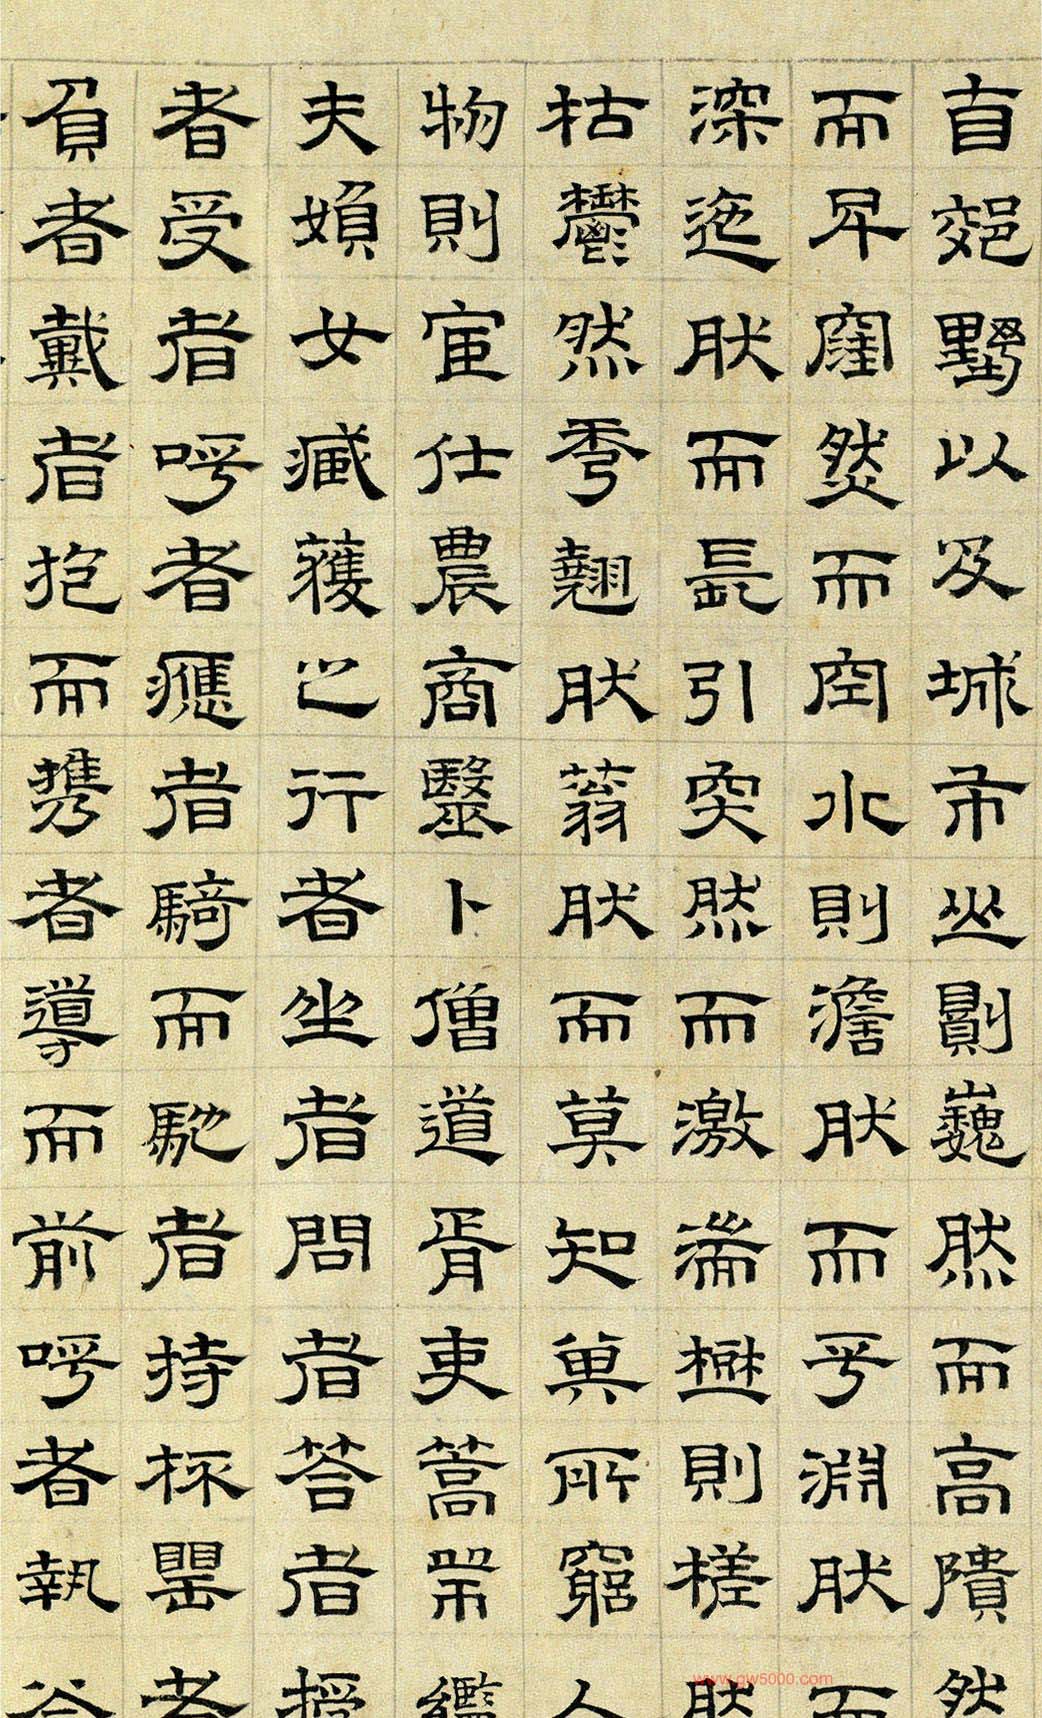 自郊墅以及城市山則巍然而高隤然
而卑窪然而空水則澹然而平淵然而
深迤然而長引突然而激湍樹則槎然
枯鬱然秀翹然蓊然而莫知其所窮人
物則宦仕農商醫卜僧道胥吏篙師纜
夫婦女臧獲之行者坐者問者答者授
者受者呼者應者騎而馳者持杯罌者
負者戴者抱而携者導而前呼者執斧
www.gw5000.com